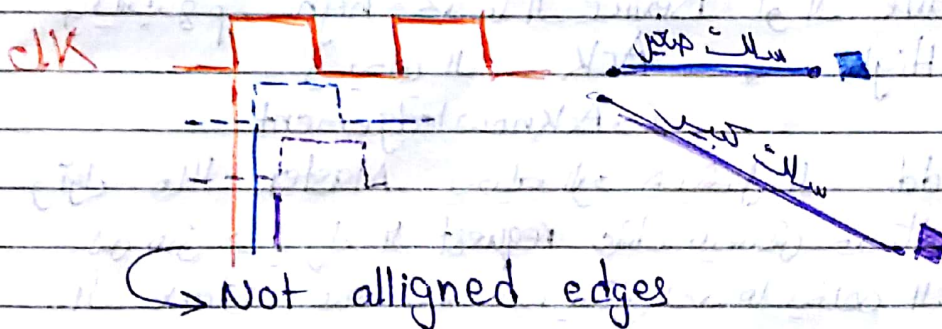 clk
سلك صغير
سلك كبير
Not alligned edges